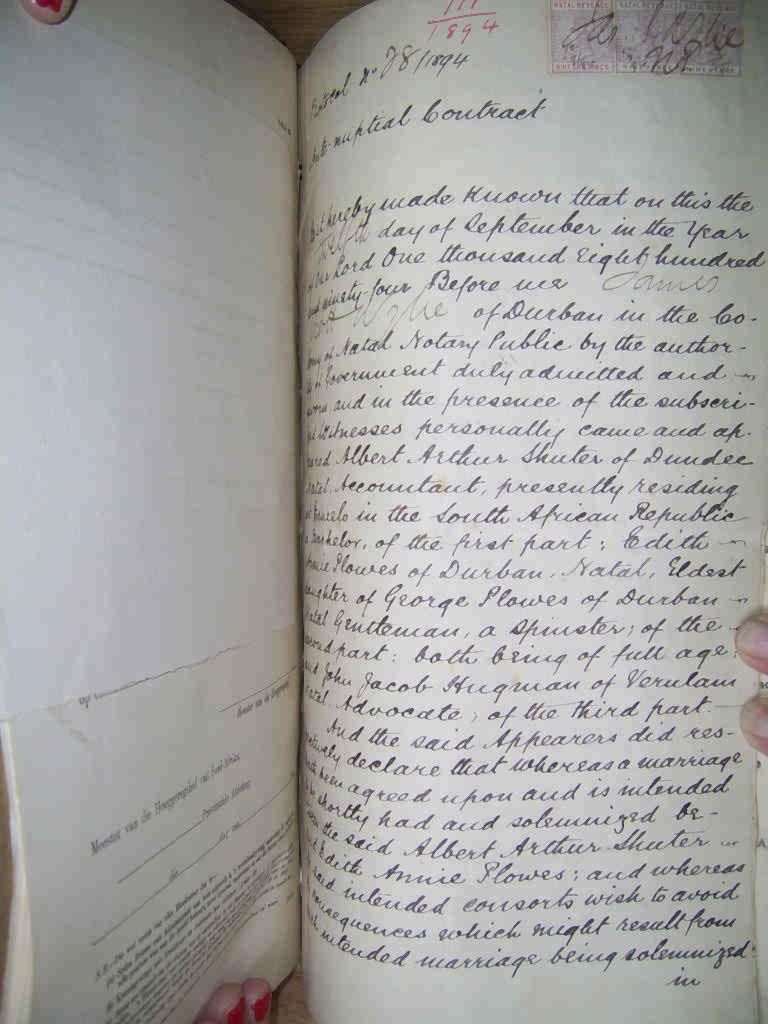 111
1894
NATAL REVENUE NATAL REVENUE
Protocol No 78/1894
Ante-nuptial Contract
hereby made Known that on this the
Twelfth day of September in the Year
of Our Lord One thousand Eight hundred
and ninety-four Before me James
Wylie of Durban in the Co-
of Natal Notary Public by the author-
of Government duly admitted and
sworn, and in the presence of the subscri-
Witnesses personally came and ap-
Albert Arthur Shuter of Dundee
Natal, Accountant, presently residing
at Ermelo in the South African Republic
a Bachelor, of the first part; Edith
Annie Plowes of Durban, Natal, Eldest
daughter of George Plowes of Durban
Natal Gentleman, a Spinster; of the
second part: both being of full age;
and John Jacob Hugman of Verulam
Natal Advocate; of the third part.
And the said Appearers did res-
declare that whereas a marriage
been agreed upon and is intended
shortly had and solemnized be-
the said Albert Arthur Shuter
and Edith Annie Plowes; and whereas
said intended consorts wish to avoid
consequences which might result from
intended marriage being solemnized
in
Meester van die Hooggeregshof van Suid-Afrika,
Provinsiale Afdeling